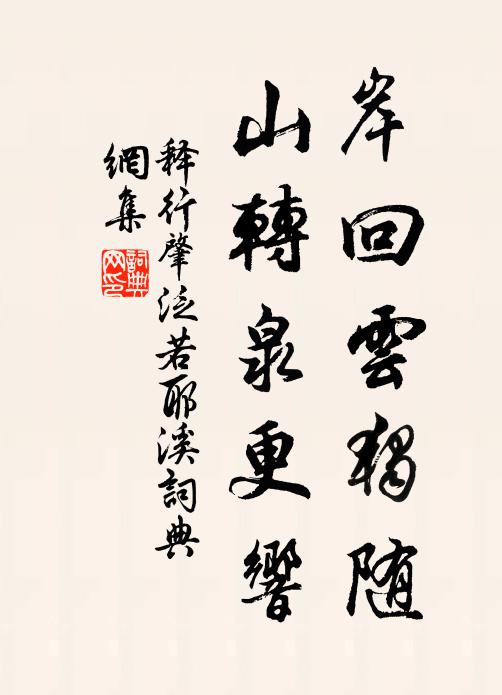 岸回雲獨随
山轉泉更響
释行肇泛若耶溪詞典
網集
詞典网印